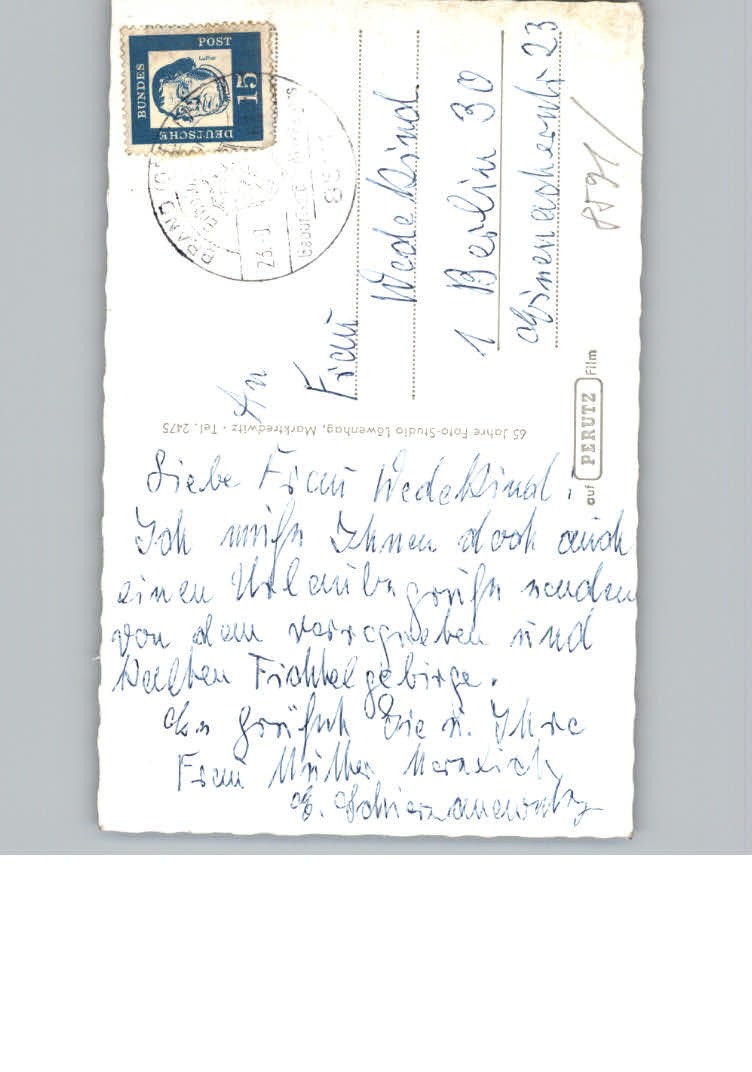 DEUTSCHE
BUNDES
POST
Luther
15
23.
858
An
Frau
Wedekind
1 Berlin 30
23
8591/
65 Jahre Foto-Studio Löwenhag, Marktredwitz · Tel. 2475
auf PERUTZ Film
Liebe Frau Wedekind!
Ich muß Ihnen doch auch
einen Urlaubsgruß senden
von dem verregneten und
kalten Fichtelgebirge.
Es grüßt Sie u. Ihre
Frau Mutter herzlich
E.